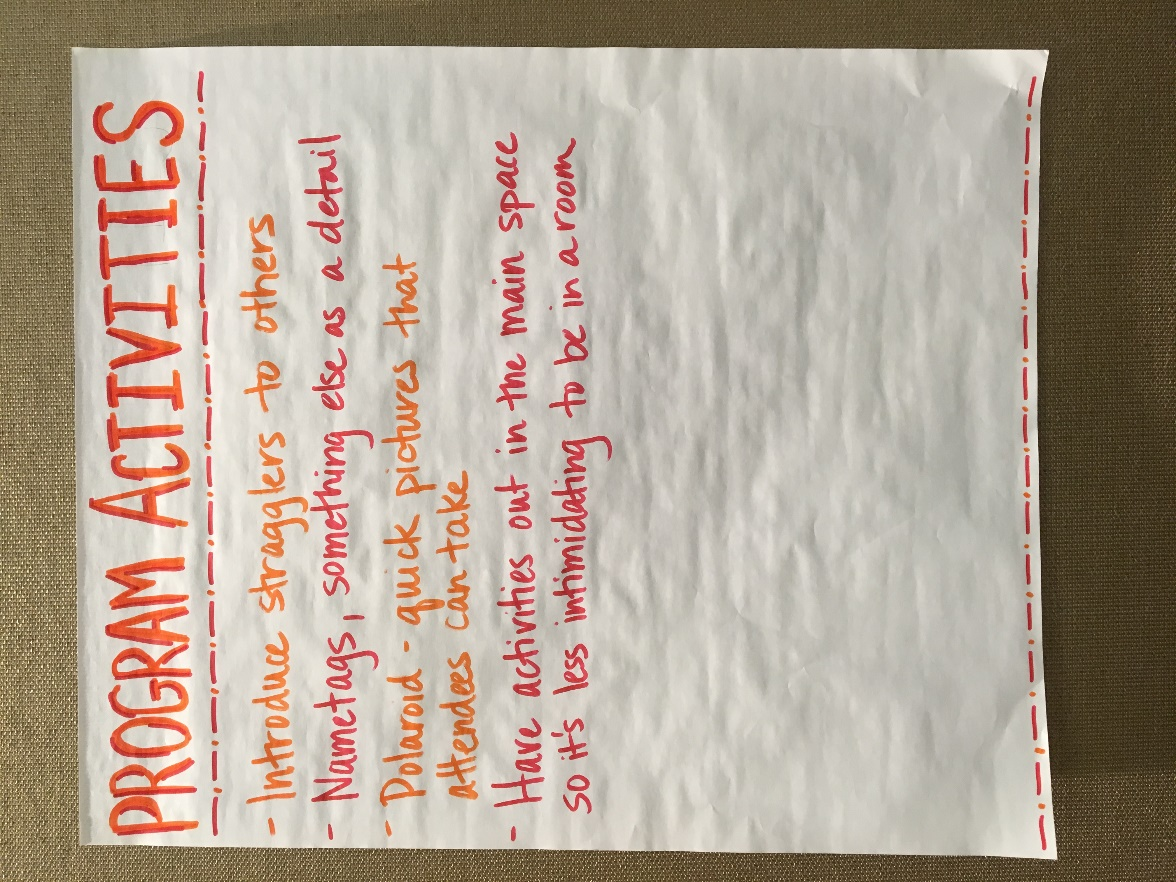 PROGRAM ACTIVITIES
- Introduce stragglers to others
- Nametags, something else as a detail
- Polaroid - quick pictures that
attendees can take
- Have activities out in the main space
so it's less intimidating to be in a room